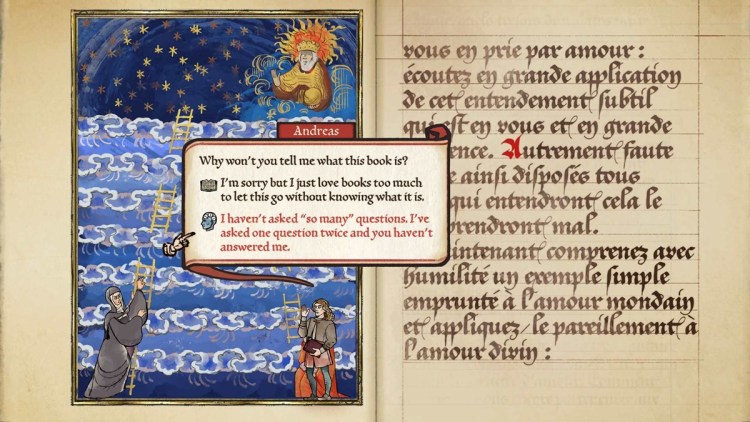 Andreas
Why won't you tell me what this book is?
I'm sorry but I just love books too much
to let this go without knowing what it is.
I haven't asked "so many" questions. I've
asked one question twice and you haven't
answered me.
vous en prie par amour :
écoutez en grande application
de cet entendement subtil
qui est en vous et en grande
ence. Autrement faute
e ainsi disposés tous
qui entendront cela le
prendront mal.
intenant comprenez avec
humilité un exemple simple
emprunté à l'amour mondain
et appliquez-le pareillement à
l'amour divin :